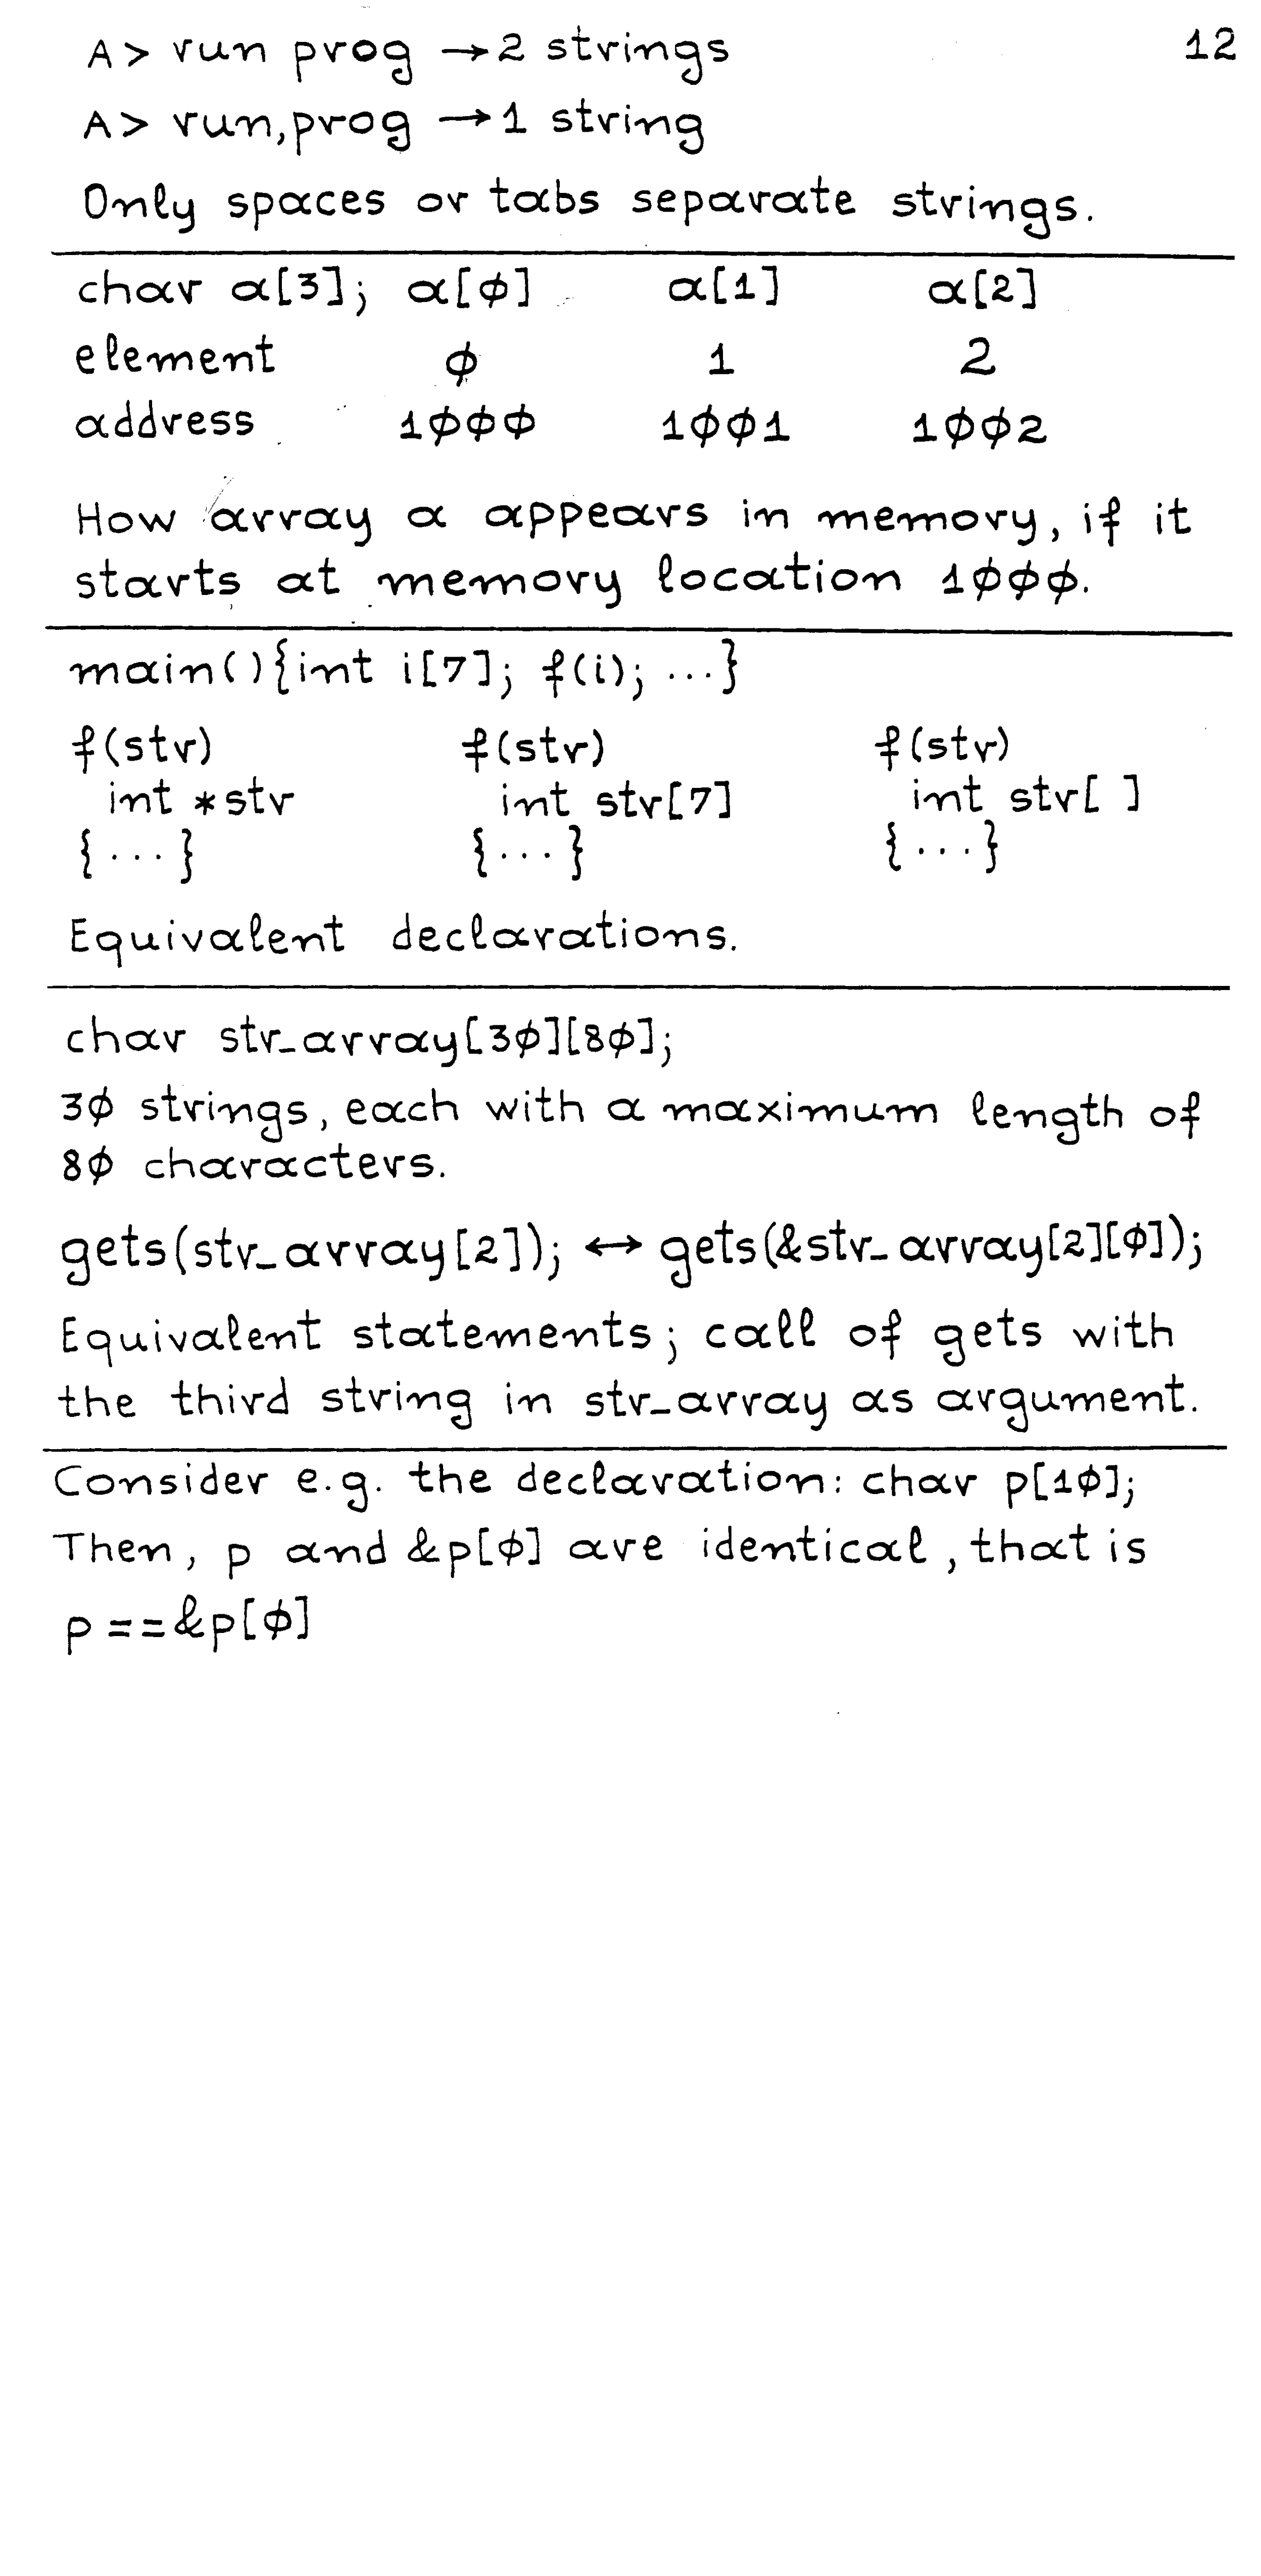 A> run prog → 2 strings 12
A> run,prog → 1 string
Only spaces or tabs separate strings.
char a[3]; a[φ] a[1] a[2]
element φ 1 2
address 1φφφ 1φφ1 1φφ2
How array a appears in memory, if it
starts at memory location 1φφφ.
main(){int i[7]; f(i); ...}
f(str) f(str) f(str)
int *str int str[7] int str[ ]
{...} {...} {...}
Equivalent declarations.
char str_array[3φ][8φ];
3φ strings, each with a maximum length of
8φ characters.
gets(str_array[2]); ↔ gets(&str_array[2][φ]);
Equivalent statements; call of gets with
the third string in str_array as argument.
Consider e.g. the declaration: char p[1φ];
Then, p and &p[φ] are identical, that is
p==&p[φ]